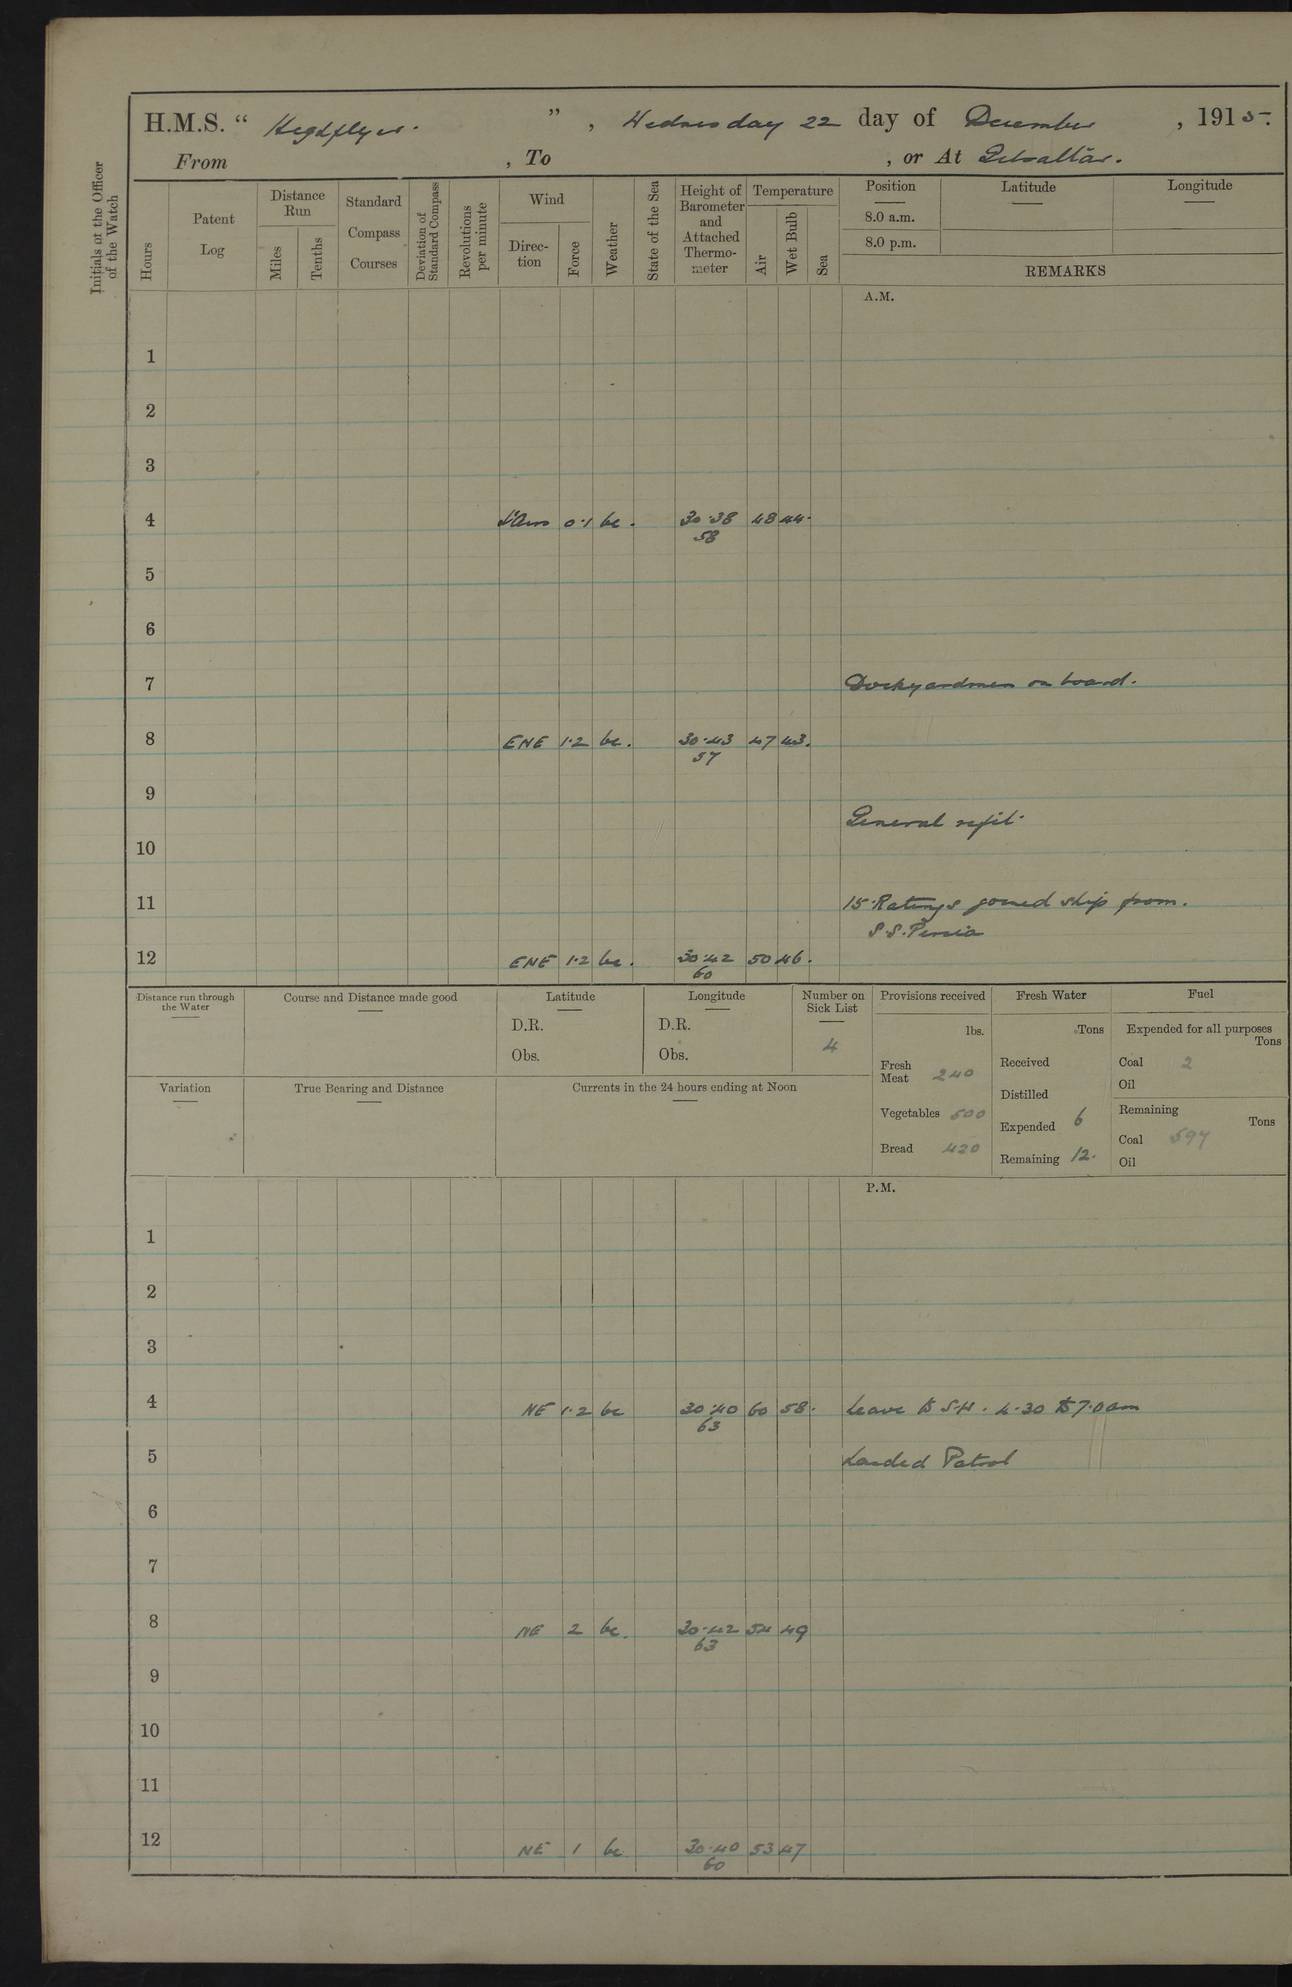 H.M.S. " Highflyer. ", Wednesday 22 day of December, 1915.
From , To , or At Gibraltar.
Initials of the Officer of the Watch
Hours
Patent Log
Distance Run
Miles
Tenths
Standard Compass Courses
Deviation of Standard Compass
Revolutions per minute
Wind
Direc-tion
Force
Weather
State of the Sea
Height of Barometer and Attached Thermo-meter
Temperature
Air
Wet Bulb
Sea
Position Latitude Longitude
8.0 a.m.
8.0 p.m.
REMARKS
A.M.
1
2
3
4 0·1 bc. 30·38 48 44.
58
5
6
7 Dockyardmen on board.
8 ENE 1·2 bc. 30·43 47 43.
57
9
General refit.
10
11 15 Ratings joined ship from.
S.S. Persia
12 ENE 1·2 bc. 30·42 50 46.
60
Distance run through the Water
Course and Distance made good
Latitude
D.R.
Obs.
Longitude
D.R.
Obs.
Number on Sick List
4
Variation
True Bearing and Distance
Currents in the 24 hours ending at Noon
Provisions received
lbs.
Fresh Meat 240
Vegetables 500
Bread 420
Fresh Water
Tons
Received
Distilled
Expended 6
Remaining 12.
Fuel
Expended for all purposes
Tons
Coal 2
Oil
Remaining
Tons
Coal 597
Oil
P.M.
1
2
3
4 NE 1·2 bc 30·40 60 58. Leave to S.W. 4·30 to 7·0 am
63
5 Landed Patrol
6
7
8 NE 2 bc. 30·42 54 49
63
9
10
11
12 NE 1 bc 30·40 53 47
60